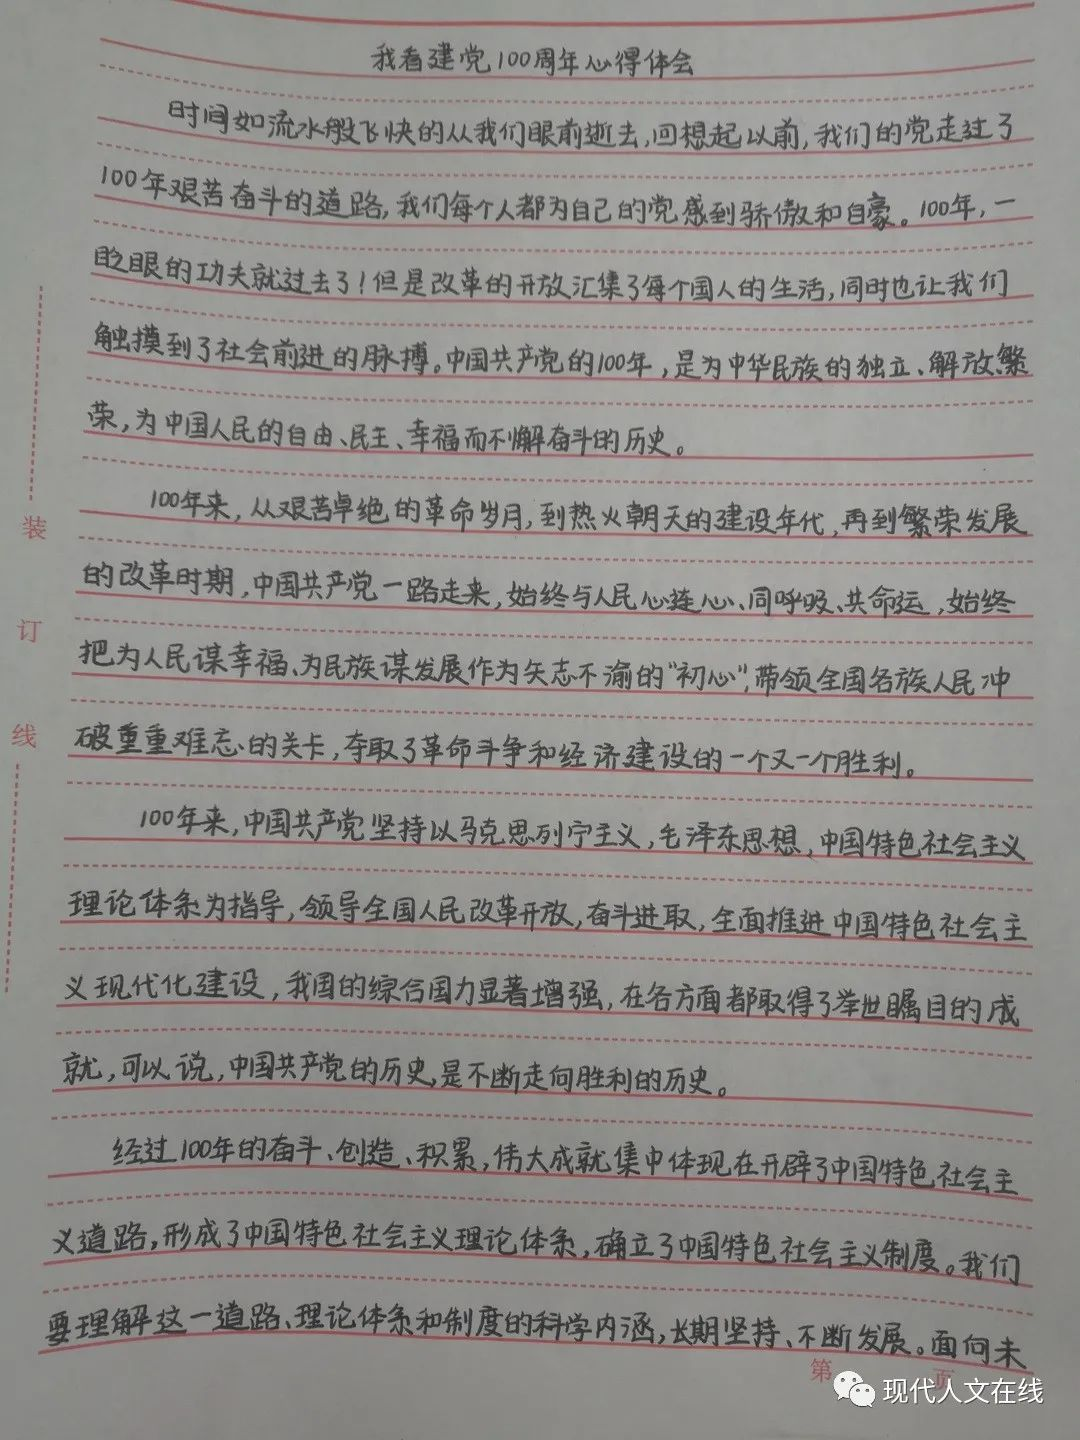 我看建党100周年心得体会
时间如流水般飞快的从我们眼前逝去,回想起以前,我们的党走过了
100年艰苦奋斗的道路,我们每个人都为自己的党感到骄傲和自豪。100年,一
眨眼的功夫就过去了!但是改革的开放汇集了每个国人的生活,同时也让我们
触摸到了社会前进的脉搏。中国共产党的100年,是为中华民族的独立、解放、繁
荣,为中国人民的自由、民主、幸福而不懈奋斗的历史。
100年来,从艰苦卓绝的革命岁月,到热火朝天的建设年代,再到繁荣发展
的改革时期,中国共产党一路走来,始终与人民心连心、同呼吸、共命运,始终
把为人民谋幸福、为民族谋发展作为矢志不渝的“初心”,带领全国各族人民冲
破重重难忘的关卡,夺取了革命斗争和经济建设的一个又一个胜利。
100年来,中国共产党坚持以马克思列宁主义,毛泽东思想、中国特色社会主义
理论体系为指导,领导全国人民改革开放,奋斗进取,全面推进中国特色社会主
义现代化建设,我国的综合国力显著增强,在各方面都取得了举世瞩目的成
就,可以说,中国共产党的历史,是不断走向胜利的历史。
经过100年的奋斗、创造、积累,伟大成就集中体现在开辟了中国特色社会主
义道路,形成了中国特色社会主义理论体系,确立了中国特色社会主义制度。我们
要理解这一道路、理论体系和制度的科学内涵,长期坚持、不断发展。面向未
装
订
线
第 页
现代人文在线